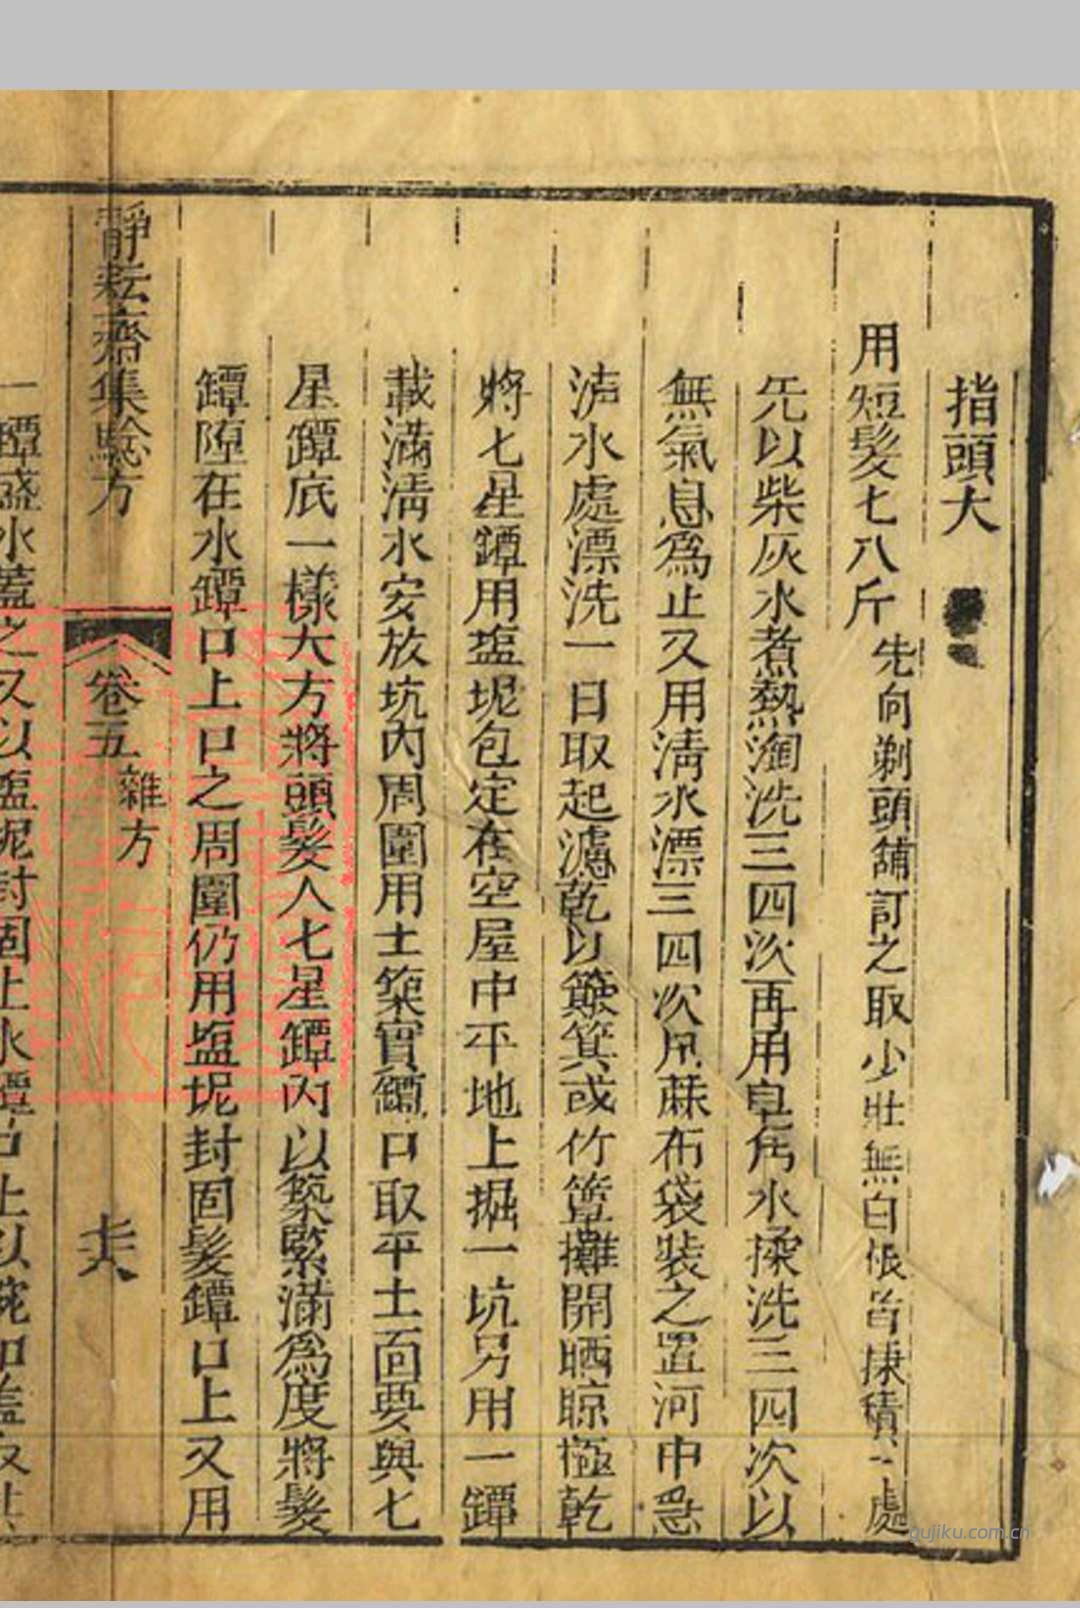 指頭大
用短髮七八斤先向剃頭舖訂之取少壯無白
先以柴灰水煮熱淘洗三四次再用皂角水揉洗三四次以
無氣息為止又用清水漂三四次用蔴布袋裝之置河中急
水處漂洗一日取起濾乾以簸箕或竹簟攤開晒晾極乾
將七星罈用塩坭包定在空屋中平地上掘一坑另用一罈
載滿清水安放坑內周圍用土築實罈口取平土面要與七
星罈底一樣大方將頭髮入七星罈內以築緊滿為度將髮
罈在水罈口上口之周圍仍用塩坭封固髮罈口上又用
靜耘齋集驗方
卷五
雜方
一罈盛水蓋之又以塩坭封固上水罈口上以碗
gujiku.com.cn